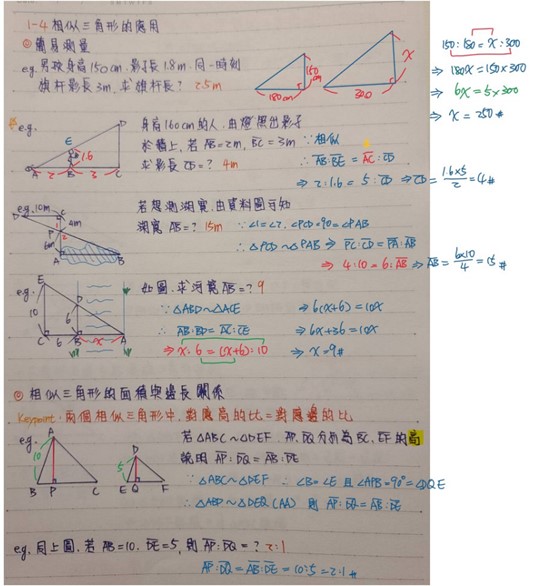 1-4 相似三角形的應用
◎ 簡易測量
e.g. 男孩身高150cm, 影子長1.8m, 同一時刻
旗杆影長3m, 求旗杆長? 2.5m
150 cm
180cm
x
300
150:180 = x:300
⇒ 180x = 150×300
⇒ 6x = 5×300
⇒ x = 250#
e.g.
E
D
1.6
A 2 B 3 C
身高160cm的人, 由燈照出影子
於牆上, 若AB=2m, BC=3m
求影長CD=? 4m
∵相似
∴ AB:BE = AC:CD
⇒ 2:1.6 = 5:CD ⇒ CD = 1.6×5/2 = 4#
e.g. 10m
D C
4m
P 1
2
6m
A B
若想測湖寬, 由資料圖可知
湖寬 AB=? 15m
∵∠1=∠2, ∠PCD=90=∠PAB
∴ △PCD~△PAB ⇒ PC:CD = PA:AB
⇒ 4:10 = 6:AB ⇒ AB = 6×10/4 = 15#
e.g.
E
D
10
6
C 6 B x A
如圖, 求河寬AB=? 9
∵△ABD~△ACE
∴ AB:BD = AC:CE
⇒ x:6 = (x+6):10
⇒ 6(x+6) = 10x
⇒ 6x+36 = 10x
⇒ x = 9#
◎ 相似三角形的面積與邊長關係
Keypoint: 兩個相似三角形中, 對應高的比=對應邊的比
e.g.
A
10
B P C
D
5
E Q F
若△ABC~△DEF, AP, DQ分別為BC, EF的高
說明 AP:DQ = AB:DE
∵ △ABC~△DEF ∴ ∠B=∠E 且∠APB=90°=∠DQE
∴ △ABP~△DEQ (AA) 則 AP:DQ = AB:DE
e.g. 同上圖, 若 AB=10, DE=5, 則 AP:DQ=? 2:1
AP:DQ = AB:DE = 10:5 = 2:1#